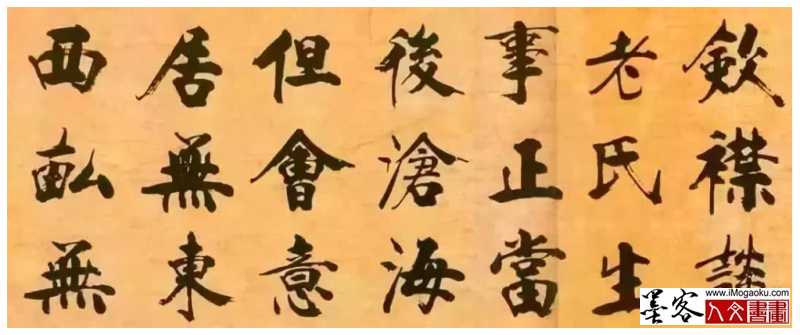 歛襟談
老氏生
事正當
後滄海
但會意
居無東
西畝無
墨客
www.iMogaoku.com
人文書畫